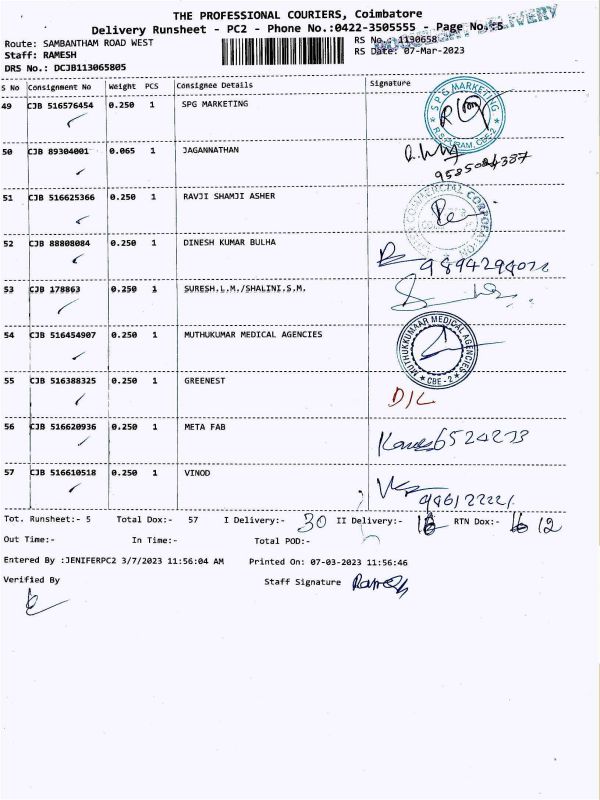 THE PROFESSIONAL COURIERS, Coimbatore
Delivery Runsheet - PC2 - Phone No.:0422-3505555 - Page No.:5
DELIVERY
Route: SAMBANTHAM ROAD WEST
RS No.: 1130658
Staff: RAMESH
RS Date: 07-Mar-2023
DRS No.: DCJB113065805
S No Consignment No Weight PCS Consignee Details Signature
49 CJB 516576454 0.250 1 SPG MARKETING
SPG MARKETING R.S.PURAM, CBE-2
50 CJB 89304001 0.065 1 JAGANNATHAN
51 CJB 516625366 0.250 1 RAVJI SHAMJI ASHER
COMMERCIAL CORPORATION
52 CJB 88808084 0.250 1 DINESH KUMAR BULHA
53 CJB 178863 0.250 1 SURESH.L.M./SHALINI.S.M.
54 CJB 516454907 0.250 1 MUTHUKUMAR MEDICAL AGENCIES
MUTHUKKUMAAR MEDICAL AGENCIES CBE - 2
55 CJB 516388325 0.250 1 GREENEST
D/L
56 CJB 516620936 0.250 1 META FAB
57 CJB 516610518 0.250 1 VINOD
Tot. Runsheet:- 5 Total Dox:- 57 I Delivery:- 30 II Delivery:- RTN Dox:- 12
Out Time:- In Time:- Total POD:-
Entered By :JENIFERPC2 3/7/2023 11:56:04 AM Printed On: 07-03-2023 11:56:46
Verified By Staff Signature Ramesh